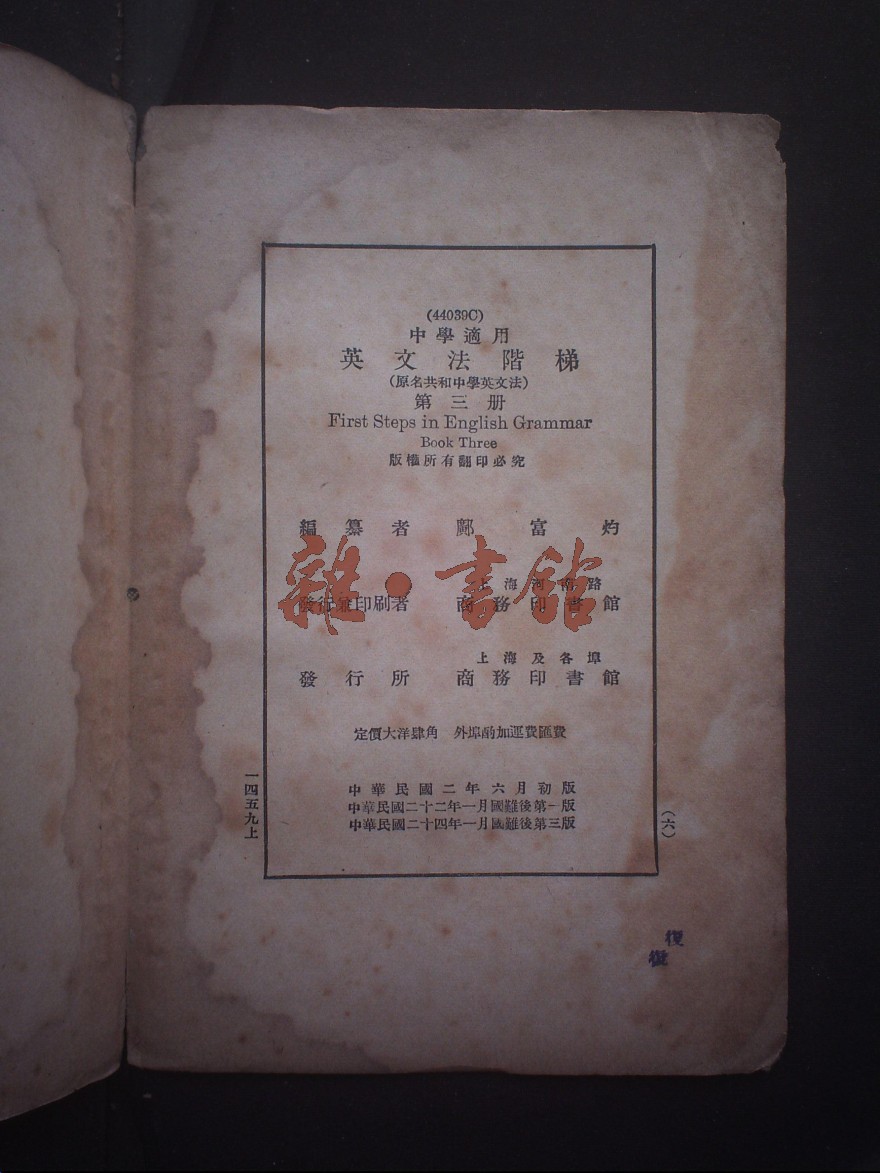 (44039C)
中學適用
英文法階梯
(原名共和中學英文法)
第三册
First Steps in English Grammar
Book Three
版權所有翻印必究
編纂者 鄺富灼
上海河南路
發行兼印刷者 商務印書館
上海及各埠
發行所 商務印書館
定價大洋肆角 外埠酌加運費匯費
中華民國二年六月初版
中華民國二十二年一月國難後第一版
中華民國二十四年一月國難後第三版
一四五九上
(六)
雜·書館
復
復